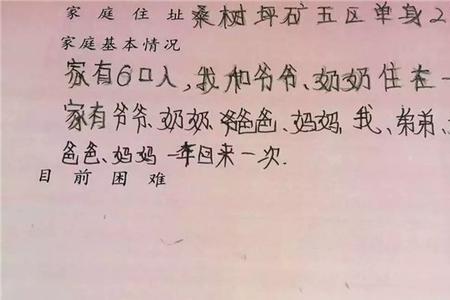 家庭住址桑树坪矿五区单身2
家庭基本情况
家有6口人,我和爷爷、奶奶住在一
家有爷爷、奶奶、爸爸、妈妈、我、弟弟、
爸爸、妈妈一年回来一次.
目前困难